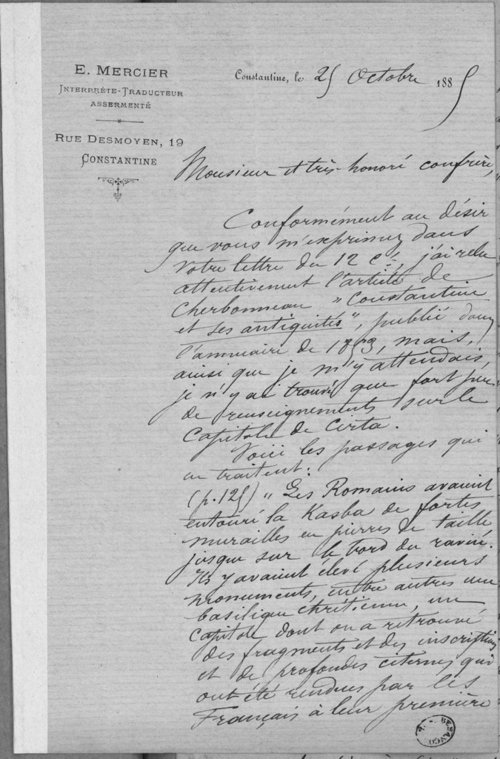 E. MERCIER
INTERPRÈTE-TRADUCTEUR
ASSERMENTÉ
RUE DESMOYEN, 19
CONSTANTINE
Constantine, le 25 Octobre 1885
Monsieur et très honoré confrère,
Conformément au désir
que vous m'exprimez dans
votre lettre du 12 ct, j'ai relu
attentivement l'article de
Cherbonneau "Constantine
et ses antiquités", publié dans
l'annuaire de 1853, mais,
ainsi que je m'y attendais,
je n'y ai trouvé que fort peu
de renseignements sur le
Capitole de Cirta.
Voici les passages qui
en traitent:
(p. 125) "Les Romains avaient
entouré la Kasba de fortes
murailles en pierres de taille
jusque sur le bord du ravin.
Ils y avaient élevé plusieurs
monuments, entre autres une
basilique chrétienne, un
capitole dont on a retrouvé
des fragments et des inscriptions
et de profondes citernes qui
ont été rendues par les
Français à leur première